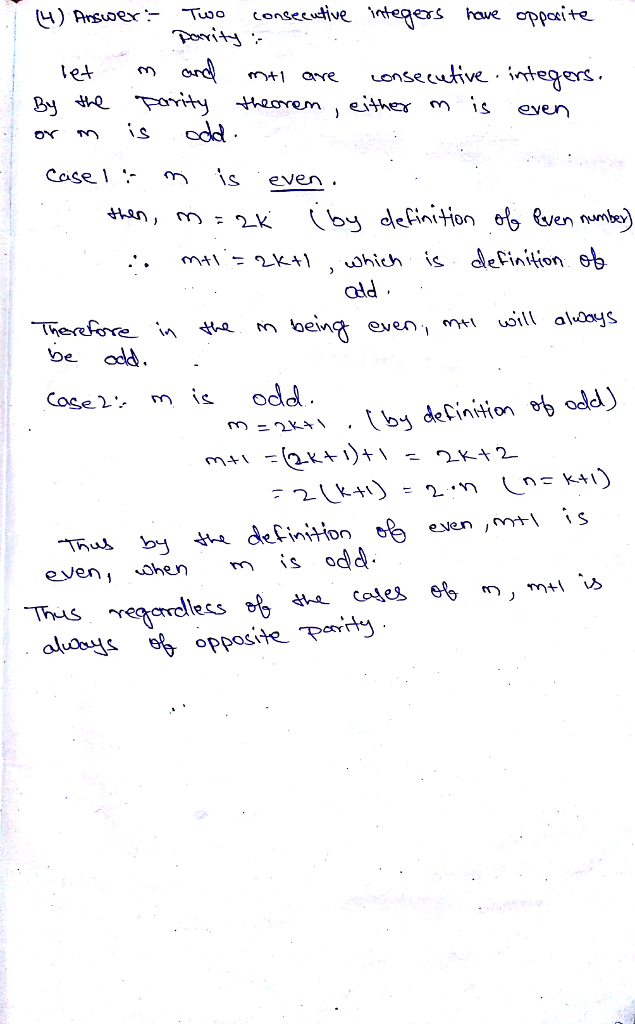 (4) Answer :- Two consecutive integers have opposite
parity :-
let m and m+1 are consecutive integers.
By the Parity theorem, either m is even
or m is odd.
Case 1 :- m is even.
then, m = 2K (by definition of Even number)
∴ m+1 = 2K+1, which is definition of
odd.
Therefore in the m being even, m+1 will always
be odd.
Case 2 :- m is odd.
m = 2K+1. (by definition of odd)
m+1 = (2K+1)+1 = 2K+2
= 2(K+1) = 2·n (n = K+1)
Thus by the definition of even, m+1 is
even, when m is odd.
Thus regardless of the cases of m, m+1 is
always of opposite parity.